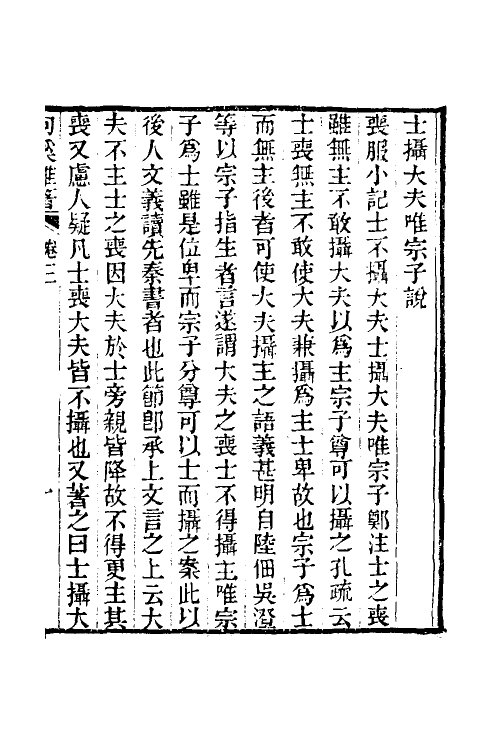 士攝大夫唯宗子說
喪服小記士不攝大夫士攝大夫唯宗子鄭注士之喪
雖無主不敢攝大夫以爲主宗子尊可以攝之孔疏云
士喪無主不敢使大夫兼攝爲主士卑故也宗子爲士
而無主後者可使大夫攝主之語義甚明自陸佃吳澄
等以宗子指生者言遂謂大夫之喪士不得攝主唯宗
子爲士雖是位卑而宗子分尊可以士而攝之案此以
後人文義讀先秦書者也此節卽承上文言之上云大
夫不主士之喪因大夫於士旁親皆降故不得更主其
喪又慮人疑凡士喪大夫皆不攝也又著之曰士攝大
句溪雜著 卷三 一